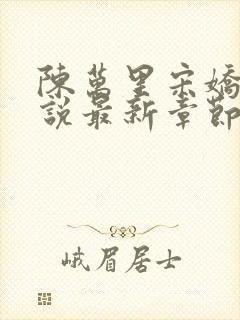 陳萬里宋嬌
說最新章節
峨眉居士